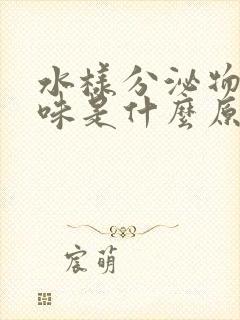 水樣分泌物
味是什麼原
宸萌